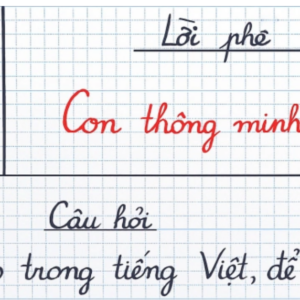 Lời phê
Con thông minh
Câu hỏi
trong tiếng Việt, để